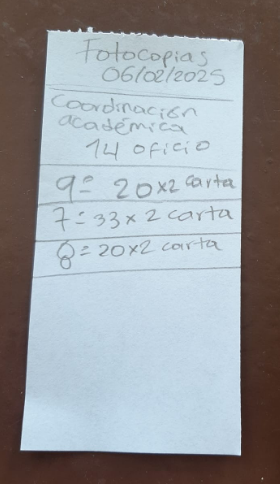 Fotocopias
06/02/2025
Coordinación
académica
14 oficio
9= 20x2 carta
7=33x2 carta
8=20x2 carta